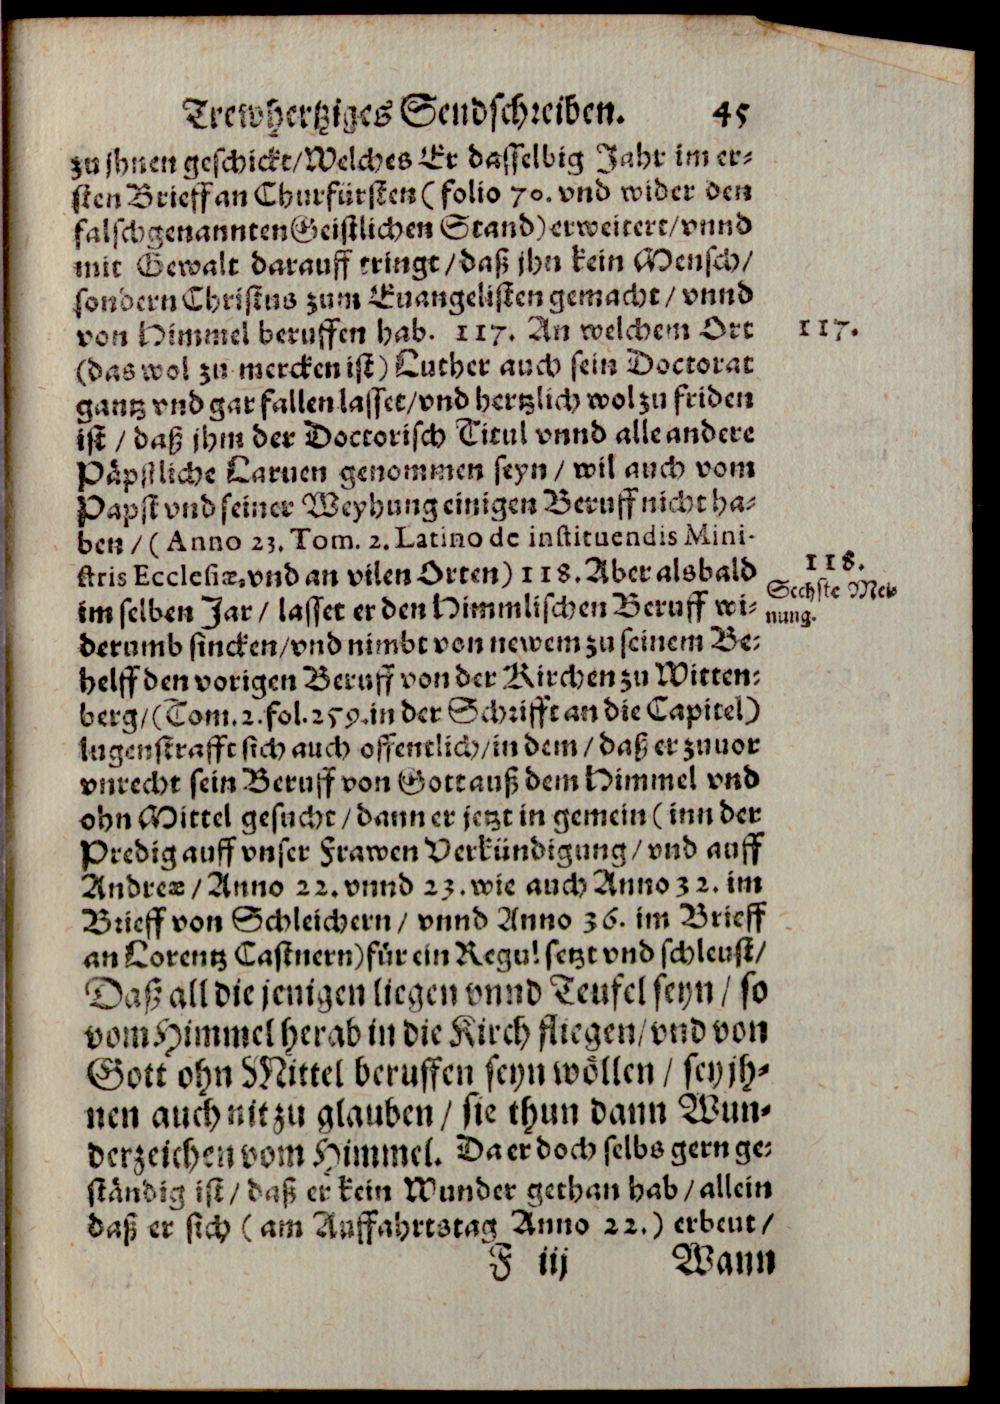 Trewhertziges Sendschreiben. 45
zu jhnen geschickt/Welches Er dasselbig Jahr im er-
sten Brieff an Churfürsten (folio 70. vnd wider den
falschgenannten Geistlichen Stand) erweitert/vnnd
mit Gewalt darauff tringt/daß jhn kein Mensch/
sondern Christus zum Euangelisten gemacht/vnnd
von Himmel beruffen hab. 117. An welchem Ort
117.
(das wol zu mercken ist) Luther auch sein Doctorat
gantz vnd gar fallen lasset/vnd hertzlich wol zu friden
ist/daß jhm der Doctorisch Titul vnnd alle andere
Päpstliche Laruen genommen seyn/wil auch vom
Papst vnd seiner Weyhung einigen Beruff nicht ha-
ben/(Anno 23. Tom. 2. Latino de instituendis Mini-
stris Ecclesiæ, vnd an vilen Orten) 118. Aber alsbald
118.
Sechste Mei-
nung.
im selben Jar/lasset er den Himmlischen Beruff wi-
derumb sincken/vnd nimbt von newem zu seinem Be-
helff den vorigen Beruff von der Kirchen zu Witten-
berg/(Tom. 2. fol. 259. in der Schrifft an die Capitel)
lugenstrafft sich auch offentlich/in dem/daß er zuuor
vnrecht sein Beruff von Gott auß dem Himmel vnd
ohn Mittel gesucht/dann er jetzt in gemein (inn der
Predig auff vnser Frawen Verkündigung/vnd auff
Andreæ/Anno 22. vnnd 23. wie auch Anno 32. im
Brieff von Schleichern/vnnd Anno 36. im Brieff
an Lorentz Castnern) für ein Regul setzt vnd schleust/
Daß all die jenigen liegen vnnd Teufel seyn/so
vom Himmel herab in die Kirch fliegen/vnd von
Gott ohn Mittel beruffen seyn wöllen/sey jh-
nen auch nit zu glauben/sie thun dann Wun-
derzeichen vom Himmel. Da er doch selbs gern ge-
ständig ist/daß er kein Wunder gethan hab/allein
daß er sich (am Auffahrtstag Anno 22.) erbeut/
F iij Wann